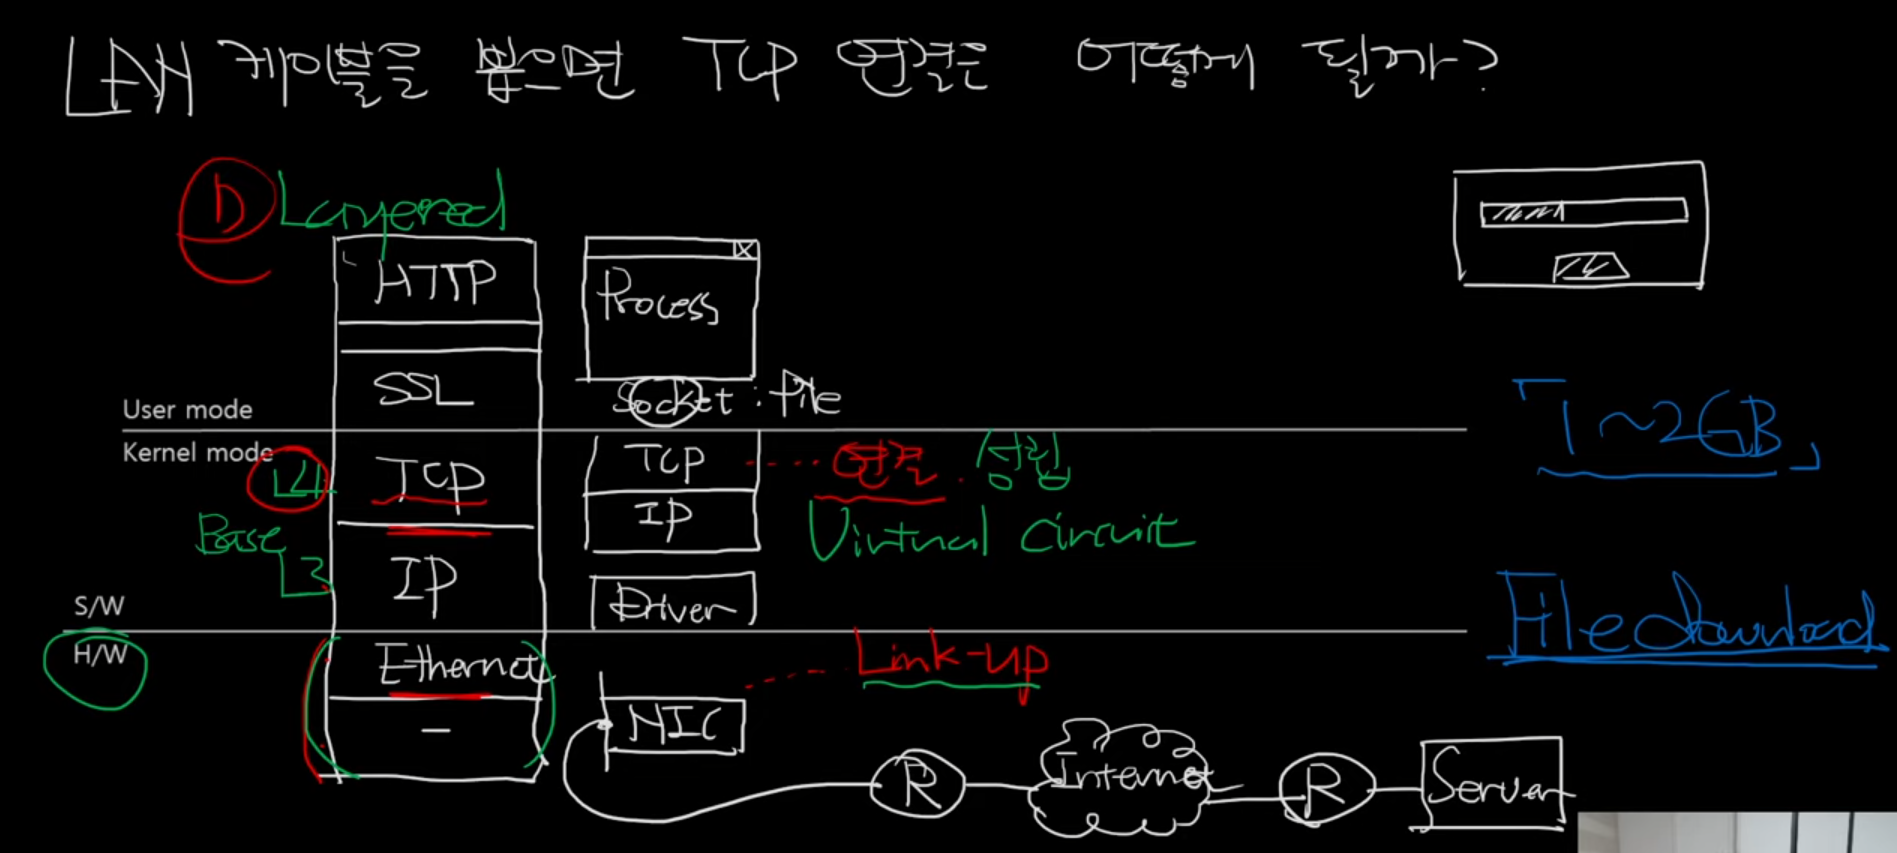 LAN 케이블을 뽑으면 TCP 연결은 어떻게 될까?
Layered
HTTP
SSL
User mode
Kernel mode
L4
TCP
Base
L3
IP
S/W
H/W
Ethernet
Process
Socket : File
TCP
IP
Driver
NIC
연결. 성립
Virtual Circuit
Link-up
R
Internet
R
Server
「1~2GB」
File download